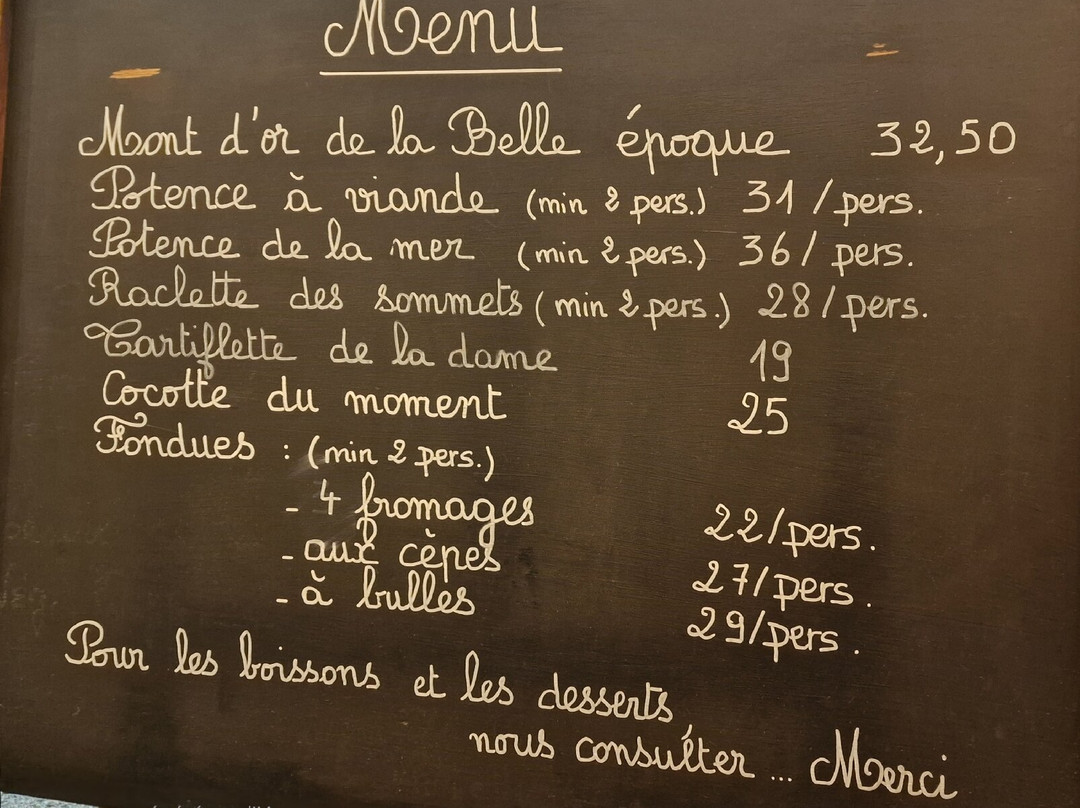 Menu
Mont d'or de la Belle époque 32,50
Potence à viande (min 2 pers.) 31 /pers.
Potence de la mer (min 2 pers.) 36/ pers.
Raclette des sommets (min 2 pers.) 28/pers.
Tartiflette de la dame 19
Cocotte du moment 25
Fondues : (min 2 pers.)
- 4 fromages 22/pers.
- aux cèpes 27/pers.
- à bulles 29/pers.
Pour les boissons et les desserts,
nous consulter ... Merci